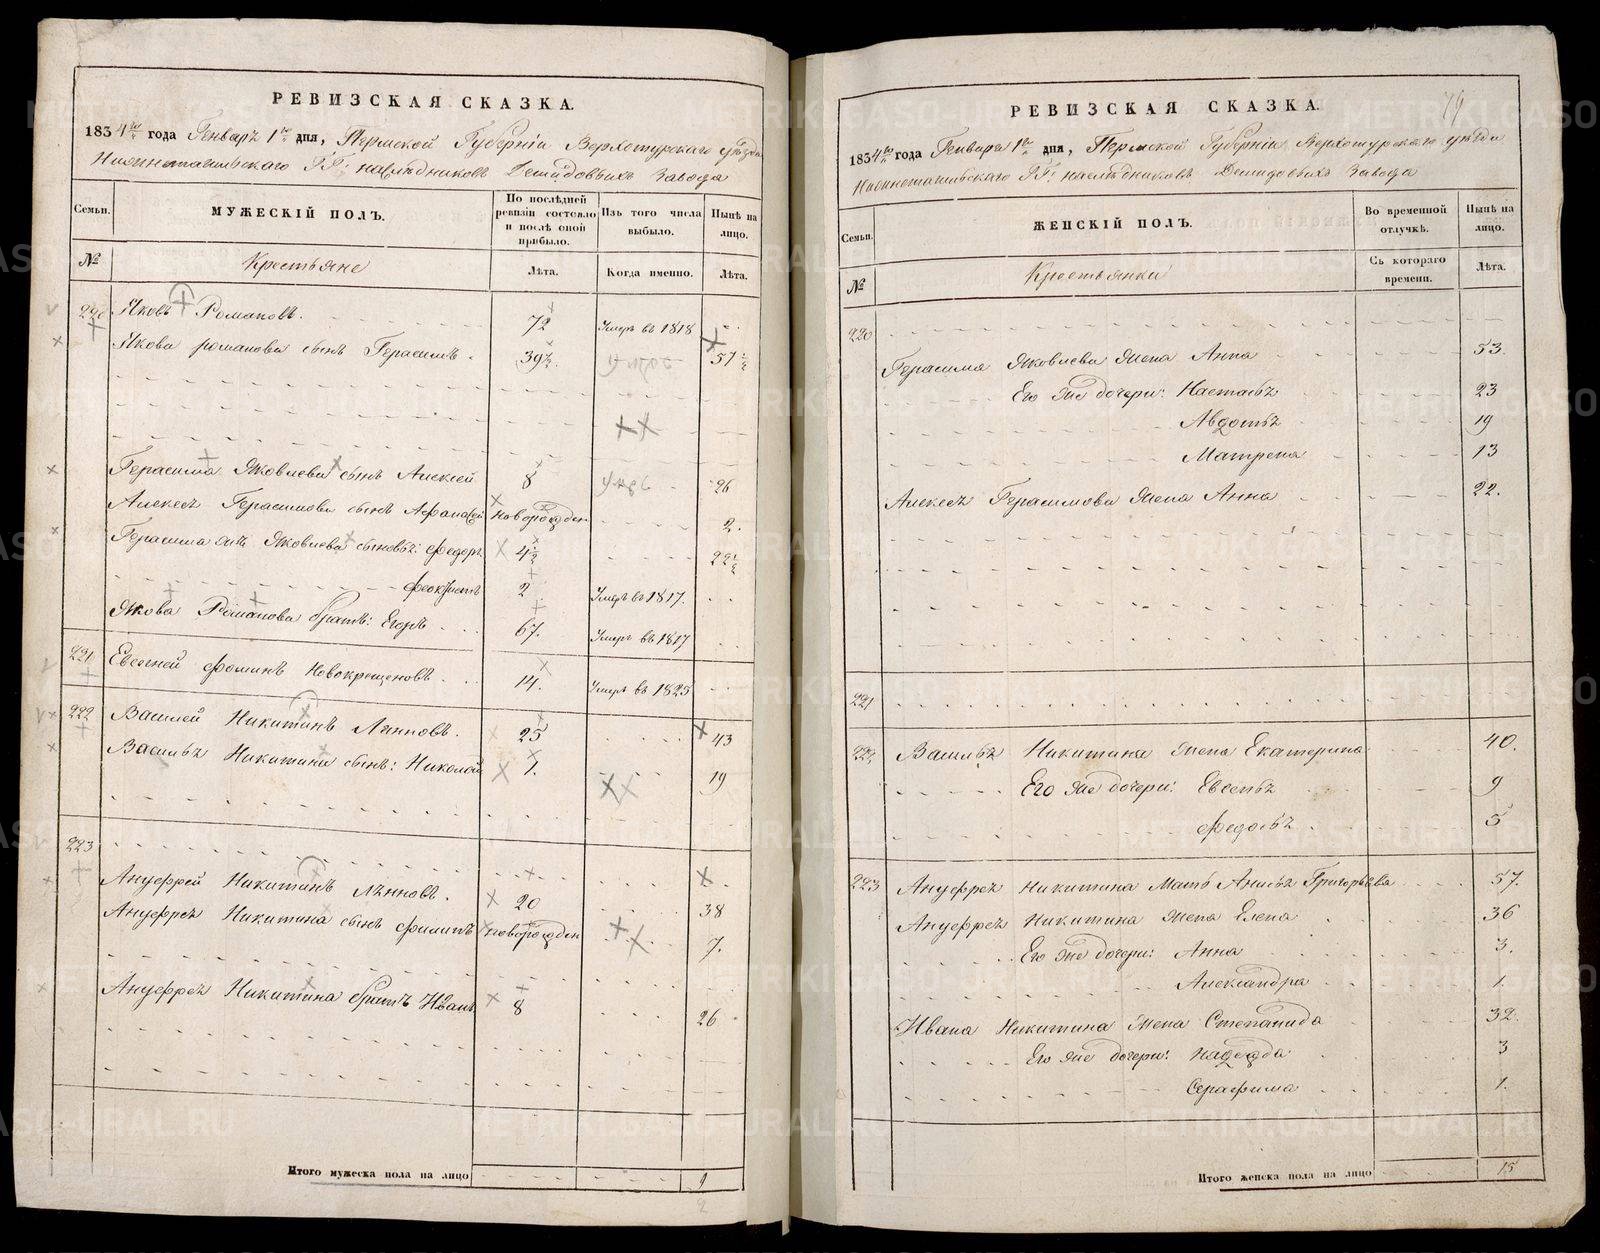 РЕВИЗСКАЯ СКАЗКА.
1834го года Генваря 1го дня, Пермской Губернiи Верхотурскаго уѣзда
Нижнетагильскаго ГГ: наслѣдниковъ Демидовыхъ Завода
Семьи. МУЖЕСКIЙ ПОЛЪ. По послѣдней ревизiи состояло и послѣ оной прибыло. Изъ того числа выбыло. Нынѣ на лицо.
№ Крестьяне Лѣта. Когда именно. Лѣта.
220 Яковъ Романовъ. 72 Умеръ въ 1818
Якова романова сынъ Герасимъ. 39½ 57½
Герасима Яковлева сынъ Алексей 8 26
Алексея Герасимова сынъ Афанасей новорожден 2.
Герасима Яковлева сыновья: Федоръ 4½ 22½
Феоктистъ 2 Умеръ въ 1817.
Якова Романова братъ: Егоръ 67. Умеръ въ 1817
221 Евсегней Фоминъ Новокрещеновъ. 14. Умеръ въ 1825
222 Василей Никитинъ Лѣнновъ. 25 43
Василья Никитина сынъ: Николай 1. 19
223
Ануфрей Никитинъ Лѣнновъ. 20 38
Ануфрея Никитина сынъ Филипъ новорожден 7.
Ануфрея Никитина братъ Иванъ 8 26
Итого мужеска пола на лицо 9
РЕВИЗСКАЯ СКАЗКА.
1834го года Генваря 1го дня, Пермской Губернiи Верхотурскаго уѣзда
Нижнетагильскаго ГГ: наслѣдниковъ Демидовыхъ Завода
Семьи. ЖЕНСКIЙ ПОЛЪ. Во временной отлучкѣ. Нынѣ на лицо.
№ Крестьянки Съ котораго времени. Лѣта.
220
Герасима Яковлева жена Анна 53.
Его же дочери: Настасья 23
Авдотья 19
Матрена 13
Алексея Герасимова жена Анна 22.
221
222 Василья Никитина жена Екатерина 40.
Его же дочери: Евсенья 9
Федосья 5
223 Ануфрея Никитина мать Анисья Григорьева 57.
Ануфрея Никитина жена Елена 36
Его же дочери: Анна 3.
Александра 1.
Ивана Никитина жена Степанида 32.
Его же дочери: Надежда 3
Серафима 1.
Итого женска пола на лицо 15
METRIKI.GASO-URAL.RU